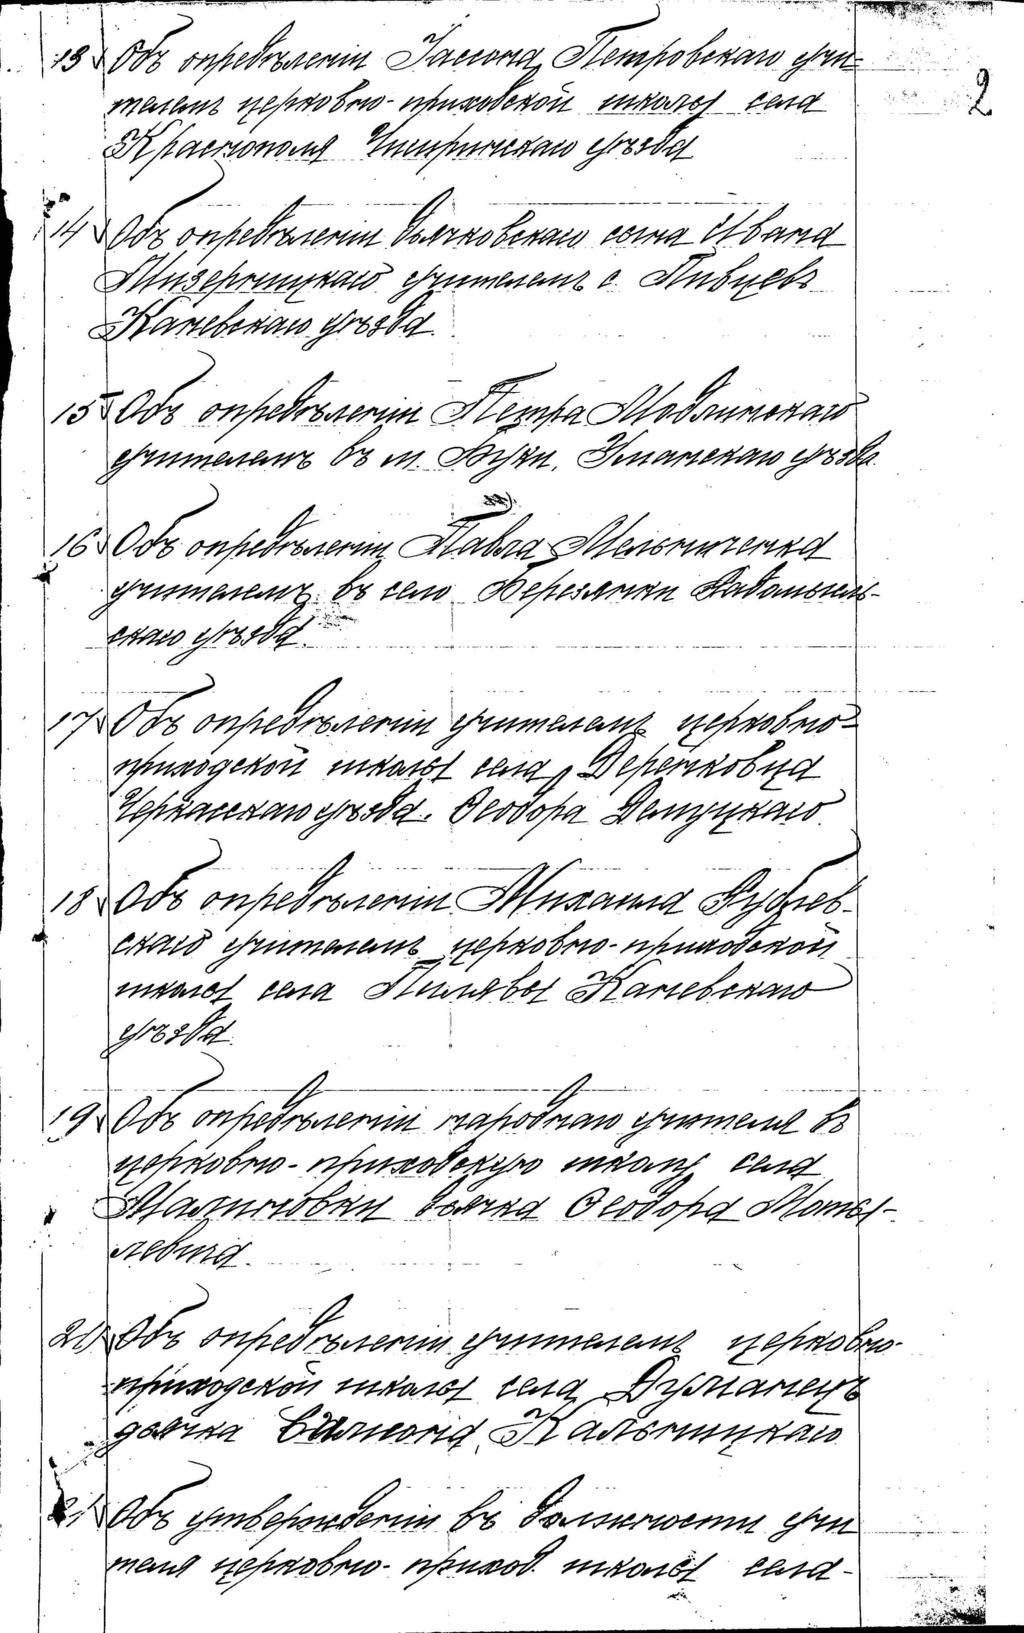 2
13 Объ опредѣленіи Іассона Петровскаго учи-
телемъ церковно-приходской школы села
Краснополя Чигиринскаго уѣзда
14 Объ опредѣленіи дьячковскаго сына Ивана
Мизерницкаго учителемъ с. Пивцевъ
Каневскаго уѣзда.
15 Объ опредѣленіи Петра Модлинскаго
учителемъ въ м. Буки, Уманскаго уѣзда.
16 Объ опредѣленіи Павла Мельниченка
учителемъ въ село Березянки Радомысль-
скаго уѣзда.
17 Объ опредѣленіи учителемъ церковно-
приходской школы села Деренковца
Черкасскаго уѣзда. Ѳеодора Демуцкаго.
18 Объ опредѣленіи Михаила Рублев-
скаго учителемъ церковно-приходской
школы села Пилявы Каневскаго
уѣзда.
19 Объ опредѣленіи народнаго учителя въ
церковно-приходскую школу села
Малиновки дьячка Ѳеодора Моты-
левича.
20 Объ опредѣленіи учителемъ церковно-
приходской школы села Думанецъ
дьячка Самсона Кальницкаго
21 Объ утвержденіи въ должности учи
теля церковно-приход. школы села-